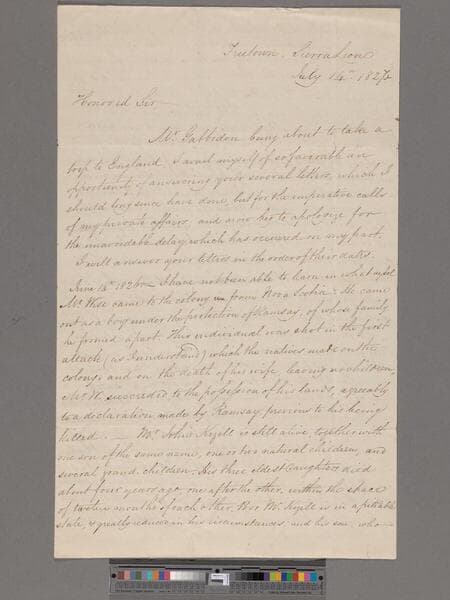 Freetown, Sierra Leone
July 14th 182
Honored Sir
Mr. Gabbidon being about to take a
trip to England, I avail myself of so favorable an
opportunity of answering your several letters, which I
should long since have done, but for the imperative calls
of my private affairs, and now beg to apologize for
the unavoidable delay which has occurred on my part.
I will answer your letters in the order of their dates.
June 14th 1826 — I have not been able to learn in what vessel
Mr. Wise came to the colony from Nova Scotia. He came
out as a boy under the protection of Ramsay, of whose family
he formed a part. This individual was shot in the first
attack (as I understand) which the natives made on the
colony, and on the death of his wife leaving no children,
Mr. W. succeeded to the possession of his lands, agreeably
to a declaration made by Ramsay previous to his being
killed. — Mr. John Kizell is still alive, together with
one son of the same name, one or two natural children, and
several grand-children. His three eldest daughters died
about four years ago, one after the other, within the space
of twelve months of each other. Poor Mr. Kizell is in a pitiable
state, & greatly reduced in his circumstances, and his son, who